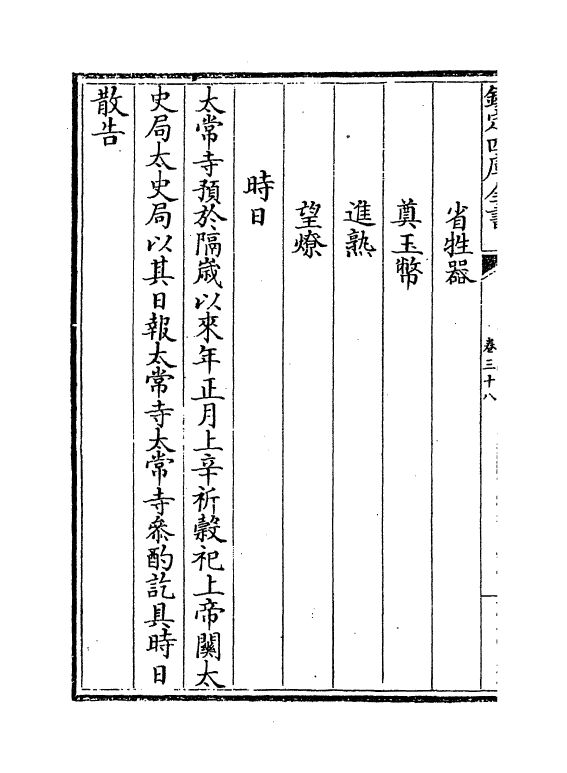 欽定四庫全書
卷三十八
省牲器
奠玉幣
進熟
望燎
時日
太常寺預於隔歲以來年正月上辛祈穀祀上帝關太
史局太史局以其日報太常寺太常寺叅酌訖具時日
散告